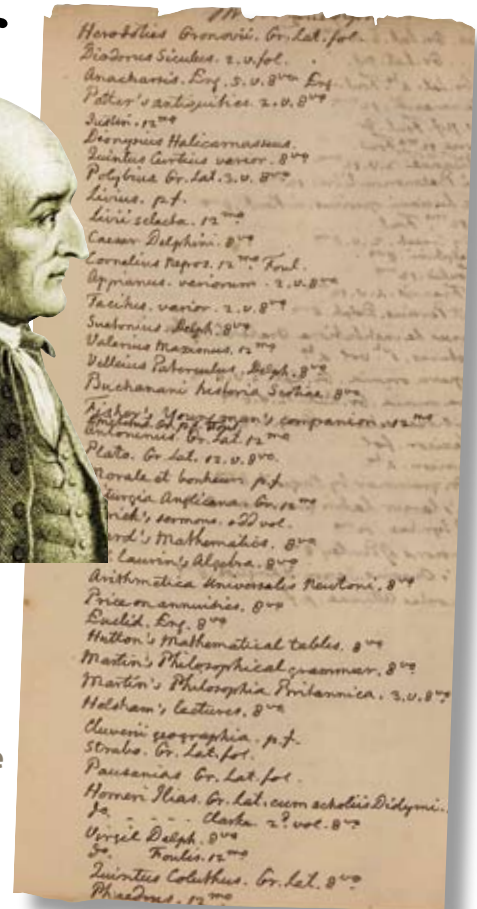 Herodotus Gronovii. Gr. Lat. fol.
Diodorus Siculus. 2. v. fol.
Anacharsis. Eng. 5. v. 8vo Eng.
Potter's antiquities. 2. v. 8vo
Justin. 12mo
Dionysius Halicarnasseus.
Quintus Curtius varior. 8vo
Polybius Gr. Lat. 3. v. 8vo
Livius. p.f.
Livii selecta. 12mo
Caesar Delphini. 8vo
Cornelius Nepos. 12mo Foul.
Appianus. variorum. 2. v. 8vo
Tacitus. varior. 2. v. 8vo
Suetonius. Delph. 8vo
Valerius Maximus. 12mo
Velleius Paterculus, Delph. 8vo
Buchanani historia Scotiae. 8vo
Fisher's Young man's companion. 12mo
Gr. p.f. Foul.
Antoninus. Gr. Lat. 12mo
Plato. Gr. Lat. 12. v. 8vo
Morale et bonheur. p.f.
iturgia Anglicana. Gr. 12mo
rick's sermons. odd vol.
rd's Mathematics. 8vo
laurin's Algebra. 8vo
Arithmetica Universalis Newtoni. 8vo
Price on annuities. 8vo
Euclid. Eng. 8vo
Hutton's Mathematical tables. 8vo
Martin's Philosophical grammar. 8vo
Martin's Philosophia Britannica. 3. v. 8vo
Helsham's lectures. 8vo
Cluverii geographia. p.f.
Strabo. Gr. Lat. fol.
Pausanias Gr. Lat. fol.
Homeri Ilias. Gr. Lat. cum scholiis Didymi.
Do. - - - - Clarke. 2d vol. 8vo
Virgil Delph. 8vo
Do. Foulis. 12mo
Quintus Coluthus. Gr. Lat. 8vo
Phaedrus. 12mo